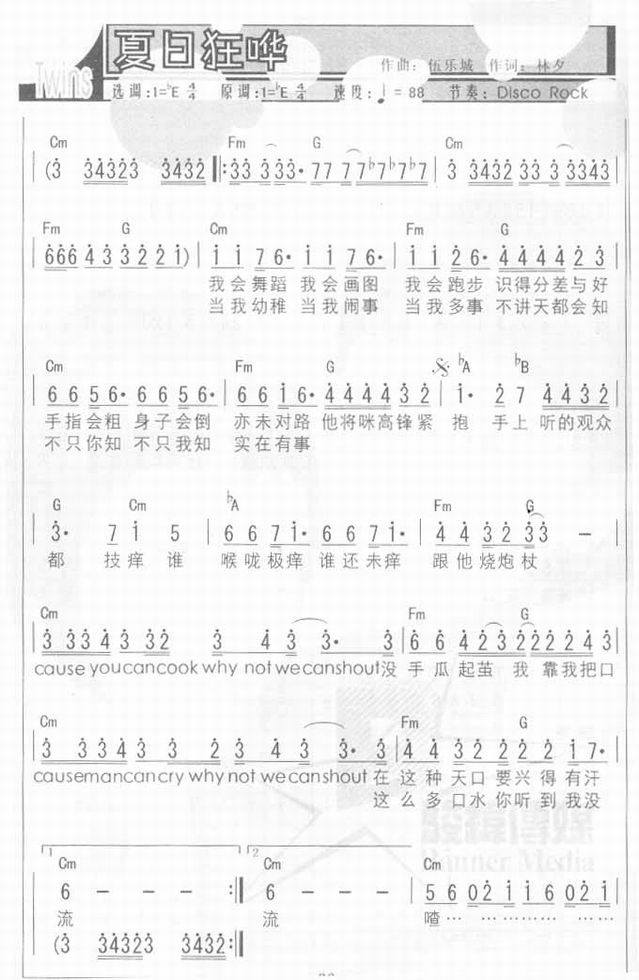 Twins
夏日狂哗
作曲：伍乐城 作词：林夕
选调：1=♭E 4/4 原调：1=♭E 4/4 速度：♩=88 节奏：Disco Rock
Cm Fm G Cm
(3 34323 3432 ‖: 33 333· 77 77♭7♭7♭7 | 3 33432 33 3 33343 |
Fm G Cm Fm G
666 433 3221) | 1176· 1176· | 1126· 4444423 |
我会舞蹈 我会画图 我会跑步 识得分差与好
当我幼稚 当我闹事 当我多事 不讲天都会知
Cm Fm G ♭A ♭B
6656· 6656· | 6616· 444432 | 1· 27 4432 |
手指会粗 身子会倒 亦未对路 他将咪高锋紧 抱 手上 听的观众
不只你知 不只我知 实在有事
G Cm ♭A Fm G
3· 7 1 5 | 6671· 6671· | 44 32 33 － |
都 技痒 谁 喉咙极痒 谁还未痒 跟他烧炮杖
Cm Fm G
3 334 3 32 3 4 3 3· 3 | 66 423222243 |
cause you can cook why not we can shout 没 手瓜起茧 我 靠我把口
Cm Fm G
3 334 3 3 2 3 4 3 3· 3 | 44 32 22 2 17· |
cause man can cry why not we can shout 在 这种天口要兴得有汗
这么多口水你听到我没
1 2
Cm Cm Cm
6 － － － :‖ 6 － － － | 56 0211 6021 |
流 流 喳… …… …… ……
(3 34323 3432 :‖